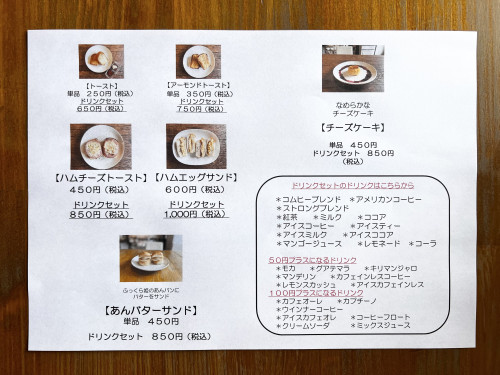 【トースト】
単品 250円(税込)
ドリンクセット
650円(税込)
【アーモンドトースト】
単品 350円(税込)
ドリンクセット
750円(税込)
【ハムチーズトースト】
450円(税込)
ドリンクセット
850円(税込)
【ハムエッグサンド】
600円(税込)
ドリンクセット
1,000円(税込)
ふっくら姫のあんパンに
バターをサンド
【あんバターサンド】
単品 450円
ドリンクセット 850円(税込)
なめらかな
チーズケーキ
【チーズケーキ】
単品 450円
ドリンクセット 850円
(税込)
ドリンクセットのドリンクはこちらから
*コムヒーブレンド *アメリカンコーヒー
*ストロングブレンド
*紅茶 *ミルク *ココア
*アイスコーヒー *アイスティー
*アイスミルク *アイスココア
*マンゴージュース *レモネード *コーラ
50円プラスになるドリンク
*モカ *グアテマラ *キリマンジャロ
*マンデリン *カフェインレスコーヒー
*レモンスカッシュ *アイスカフェインレス
100円プラスになるドリンク
*カフェオーレ *カプチーノ
*ウインナーコーヒー
*アイスカフェオレ *コーヒーフロート
*クリームソーダ *ミックスジュース